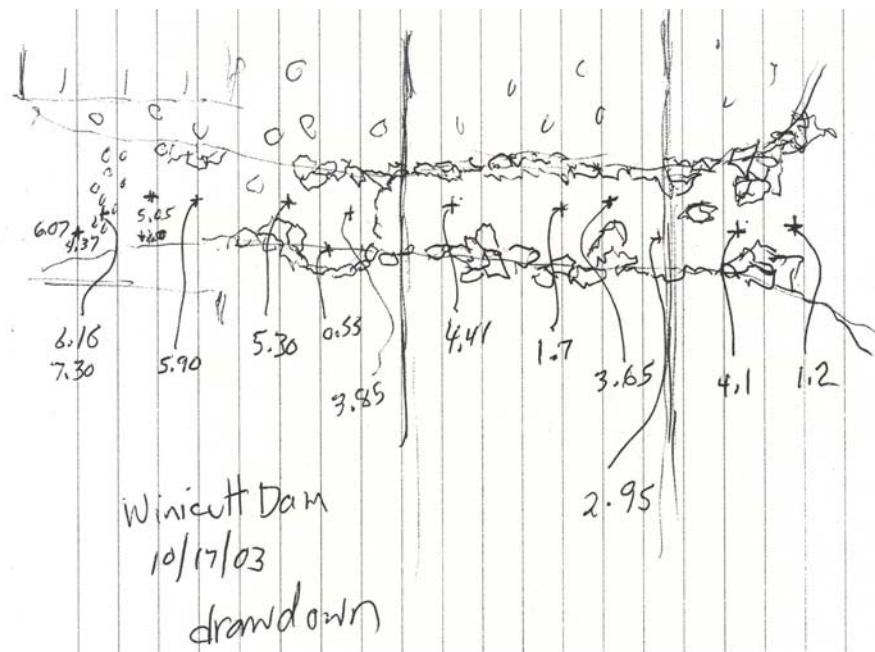 6.07
4.37
5.05
6.16
7.30
5.90
5.30
0.55
3.85
4.41
1.7
3.65
2.95
4.1
1.2
Winicutt Dam
10/17/03
drawdown